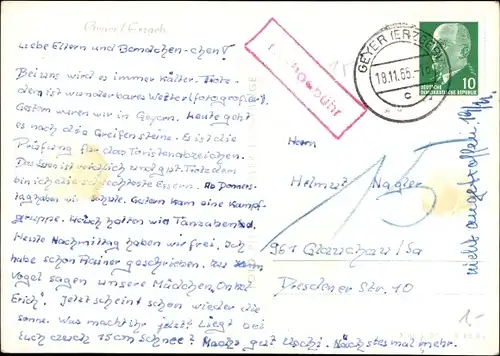 Liebe Eltern und Bemdchen-chen!
Bei uns wird es immer kälter. Trotz-
dem ist wunderbares Wetter (fotografie
Gestern waren wir in Geyern. Heute geht
es nach die Greifensteine. Es ist die
Prüfung für das Toristenabzeichen.
Das Essen ist reichlich und gut. Trotzdem
bin ich die schlechteste Esserin. Ab Donners-
tag haben wir Schule. Gestern kam eine Kampf-
gruppe. Heuch hatten wir Tanzabend.
Heute Nachmittag haben wir frei. Ich
habe schon Rainer geschrieben. Zu
Vogel sagen unsere Mädchen „Onkel
Erich". Jetzt scheint schon wieder die
Sonne. Was macht ihr jetzt? Liegt bei
Euch auch 15cm Schnee? Machs gut Uschi. Nächstes mal mehr.
Nachgebühr
15
GEYER (ERZGEB)
18.11.65
c
10
DEUTSCHE
DEMOKRATISCHE REPUBLIK
Herrn
Helmut Nagler
961 Glauchau/Sa
Dresdener Str. 10
15
nicht angetroffen 19/11.
1-